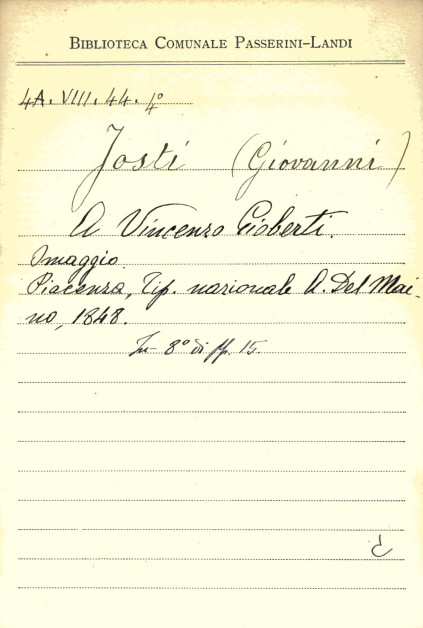 BIBLIOTECA COMUNALE PASSERINI-LANDI
4A. VIII. 44. 4º
Josti (Giovanni)
A Vincenzo Gioberti.
Omaggio.
Piacenza, Tip. nazionale A. Del Mai-
no, 1848.
In-8º di pp. 15.